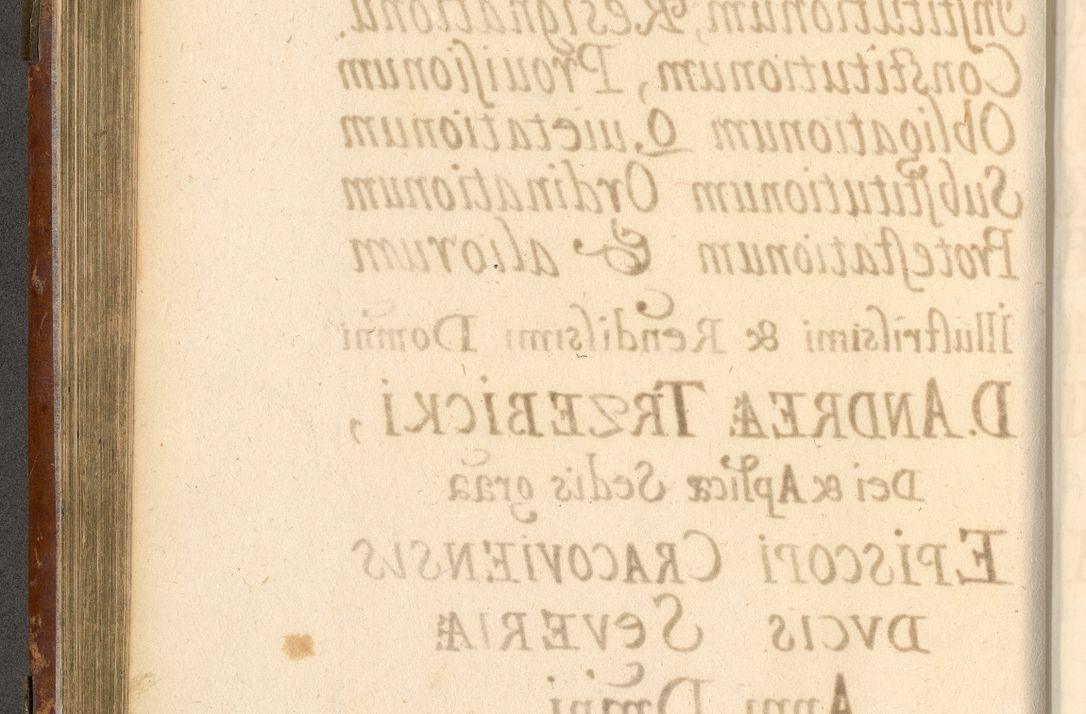 Institutionum, Resignationu.
Constitutionum, Prouisionum
Obligationum Quietationum
Substitutionum Ordinationum
Protestationum & aliorum
Illustrissimi & Rendissimi Domni
D. ANDREÆ TRZEBICKI,
Dei & Aplicæ Sedis graa
EPISCOPI CRACOVIENSIS
DVCIS SEVERIÆ
Anni Dmni